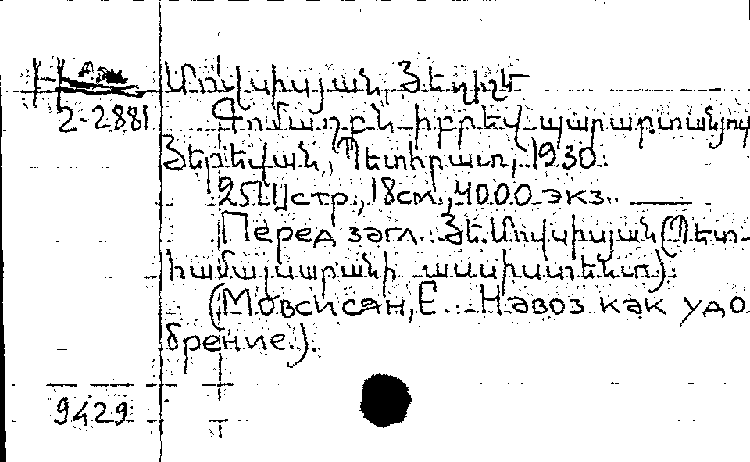 Մովսիսյան, Յեղիշե
2-2881
Գոմաղբն իբրև պարարտանյու
Յերեվան, Պետհրատ, 1930.
25[1]стр., 18см., 4000 экз.
Перед загл.: Յե. Մովսիսյան (Պետ-
համալսարանի ասսիստենտ).
(Мовсисян, Е. Навоз как удо
брение.).
9429